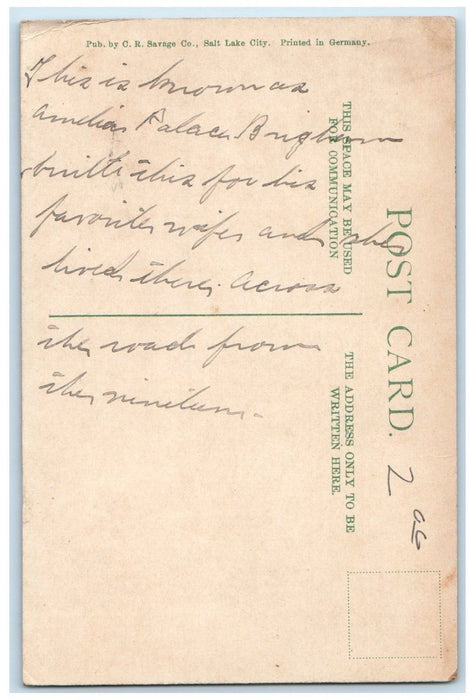 Pub. by C. R. Savage Co., Salt Lake City. Printed in Germany.
This is known as
Amelia Palace Brigham
built this for his
favorite wife and she
lived there. Across
the road from
the
THIS SPACE MAY BE USED
FOR COMMUNICATION
POST CARD.
THE ADDRESS ONLY TO BE
WRITTEN HERE.
2